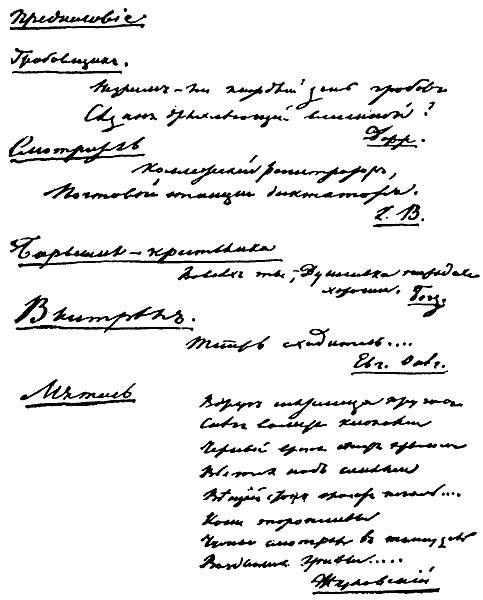 Предисловіе
Гробовщикъ.
Не зримъ-ли каждый день гробовъ
Сѣдинъ дряхлѣющей вселенной?
Держ.
Смотритель
Коллежскій регистраторъ,
Почтовой станціи диктаторъ.
В.
Барышня-крестьянка
Во всѣхъ ты, Душинька нарядахъ
хороша. Богд.
Выстрѣлъ.
Теперь сходитесь....
Евг. Онѣг.
Мятель
Вдругъ мятелица кругомъ
Снѣгъ валитъ клоками
Черный вранъ крыломъ
Вьется надъ санями
Вѣщій стонъ печаль....
Кони торопливы
Чутко смотрятъ въ даль
Воздымая гривы.....
Жуковскій